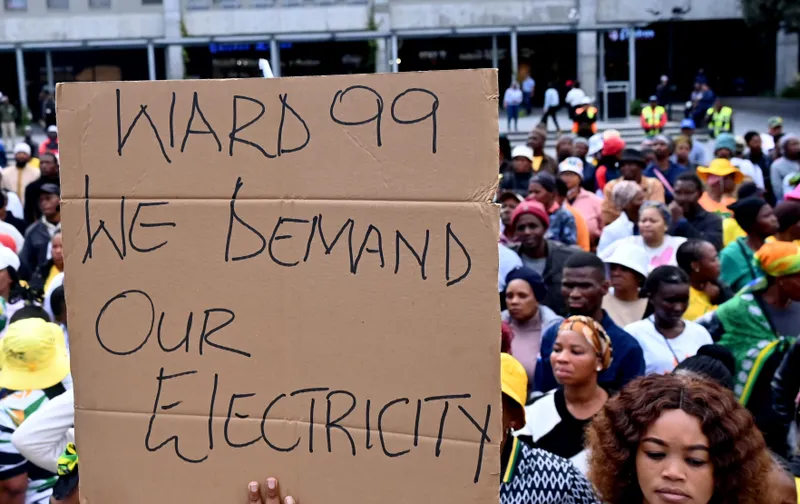 WARD 99
WE DEMAND
OUR
ELECTRICITY